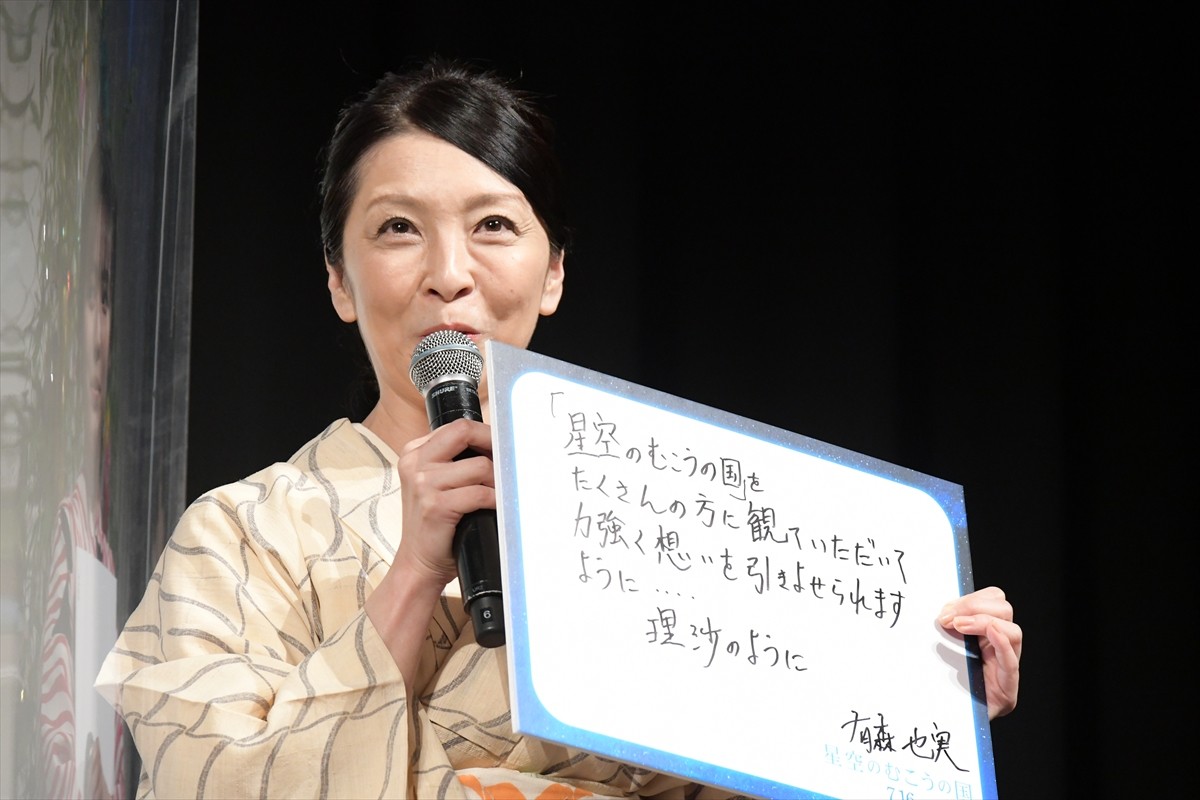 「星空のむこうの国」を
たくさんの方に観ていただいて
力強く想いを引きよせられます
ように....
理沙のように
有森也実
星空のむこうの国
7.16
SHURE
6